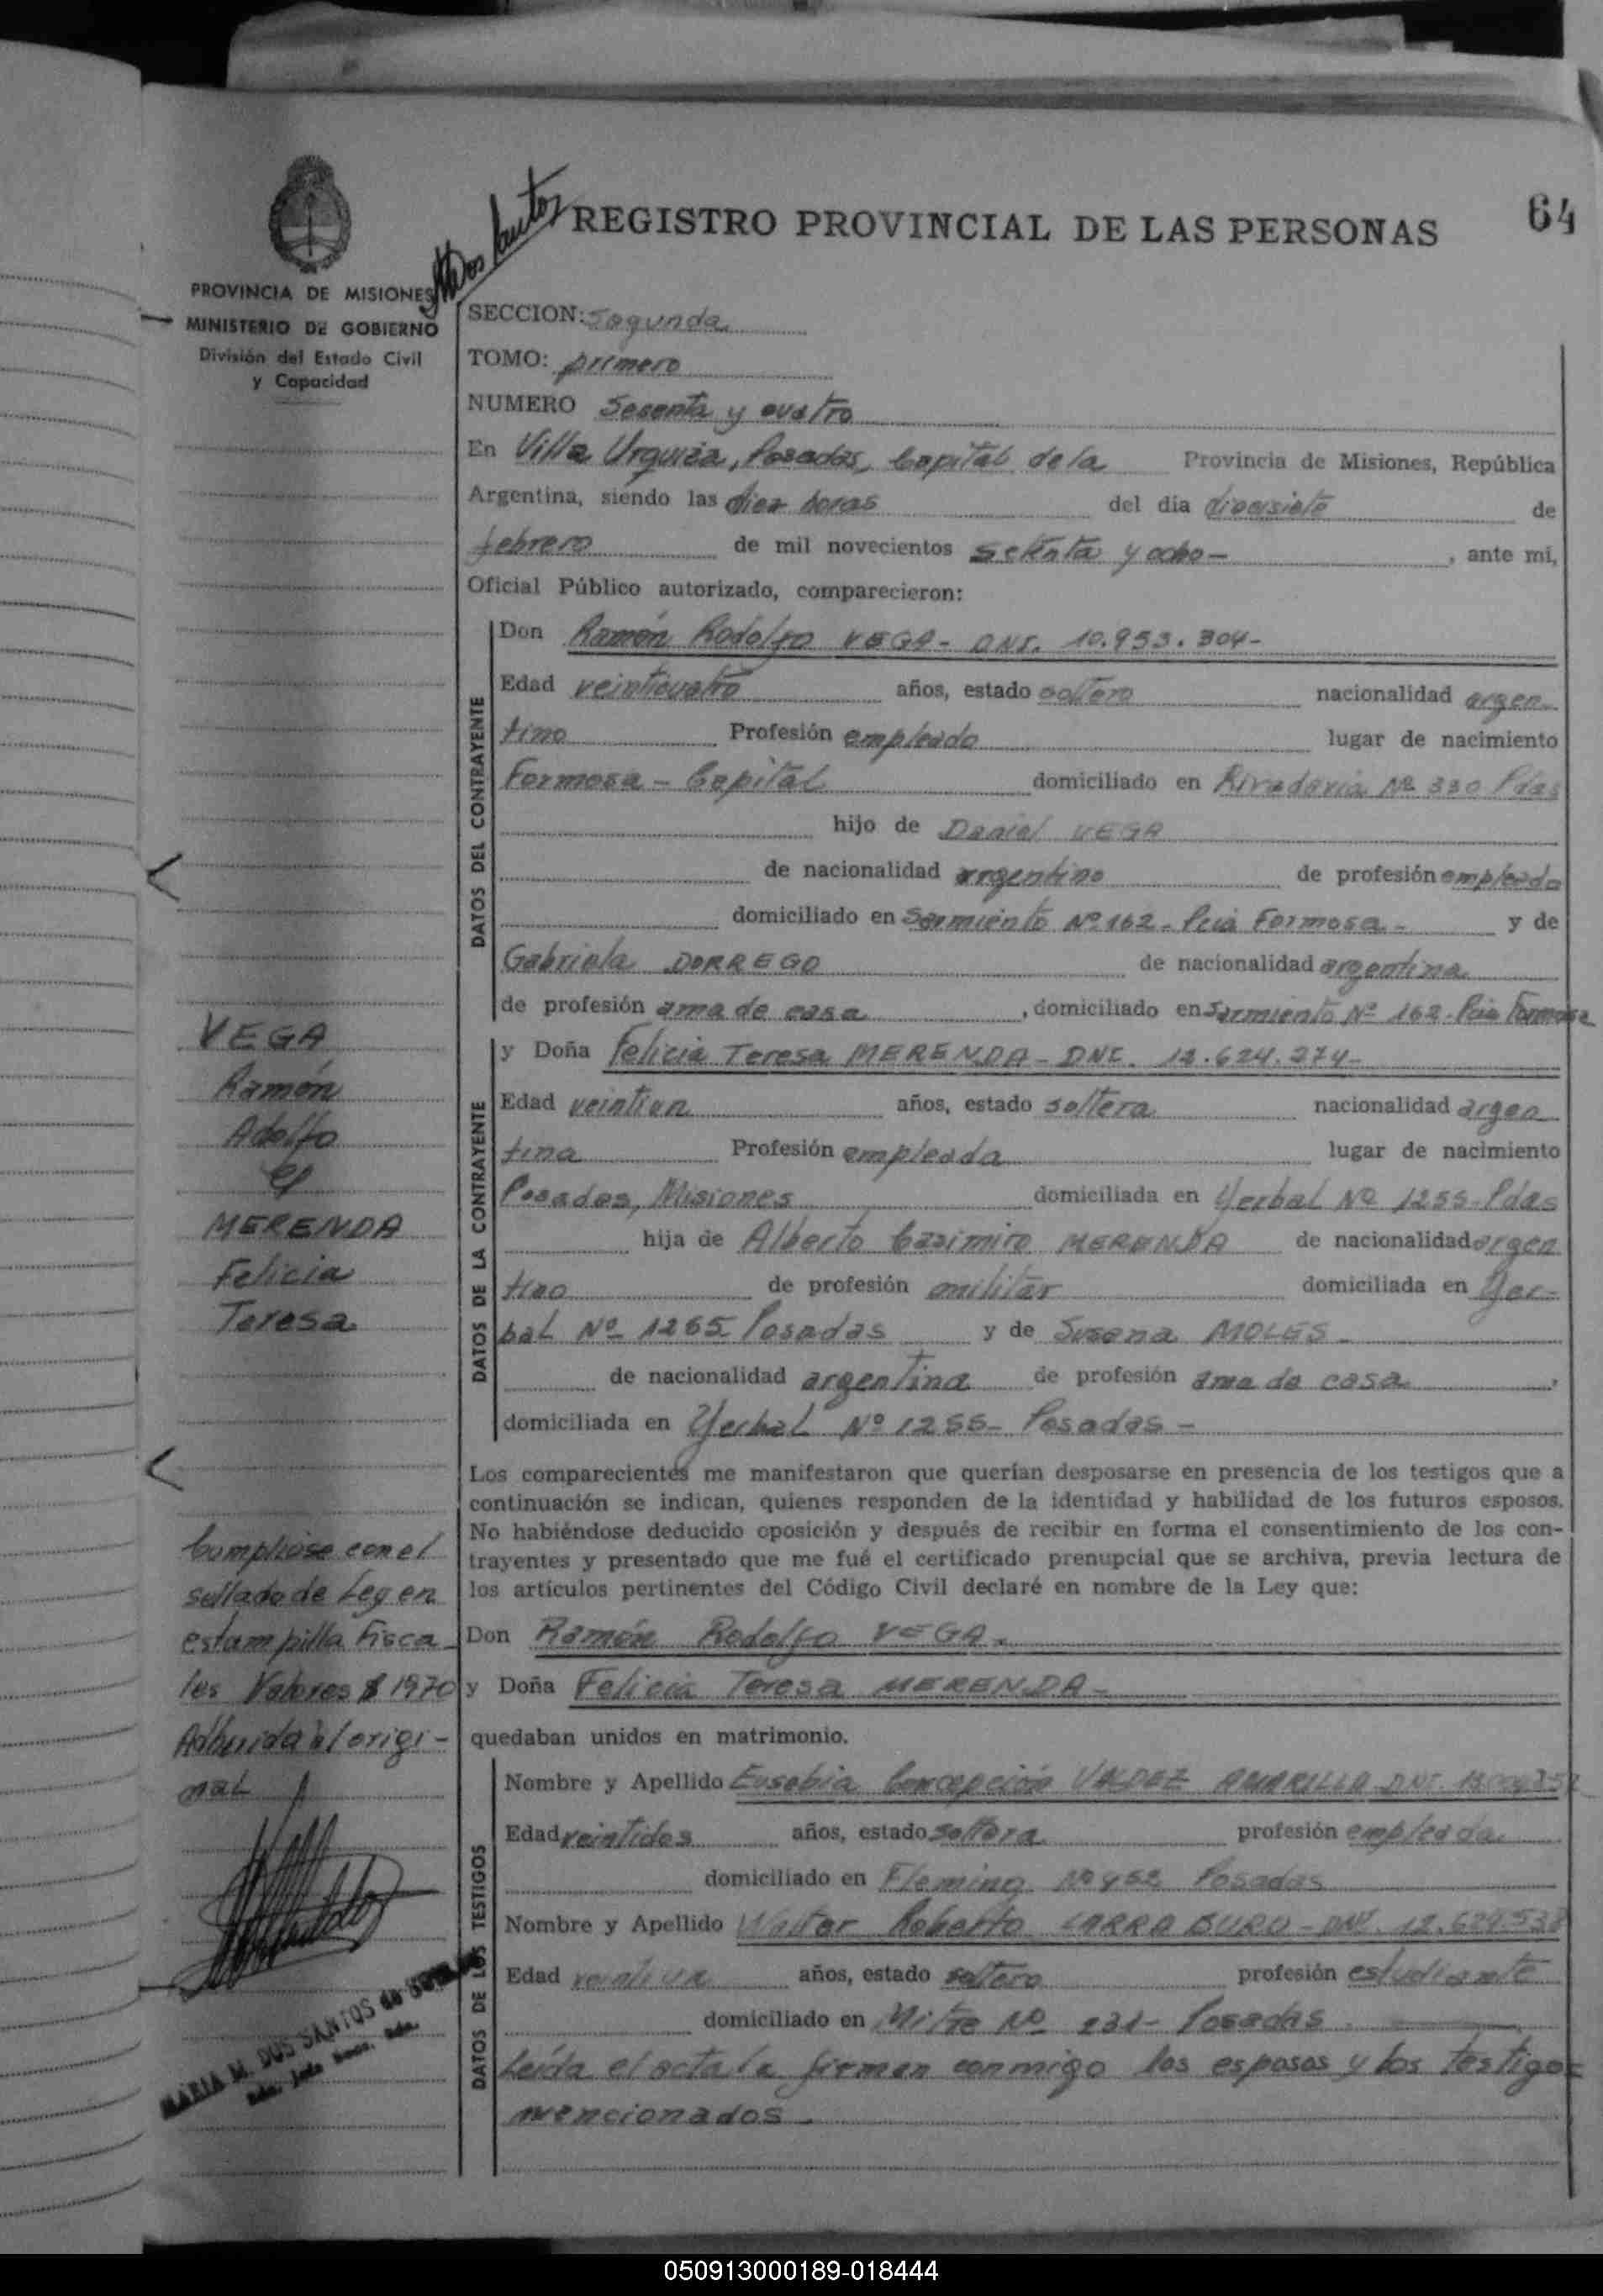 64
REGISTRO PROVINCIAL DE LAS PERSONAS
PROVINCIA DE MISIONES
MINISTERIO DE GOBIERNO
División del Estado Civil
y Capacidad
Dos Santos
SECCION: Segunda
TOMO: primero
NUMERO Sesenta y cuatro
En Villa Urquiza, Posadas, Capital de la Provincia de Misiones, República
Argentina, siendo las diez horas del día diecisiete de
febrero de mil novecientos setenta y ocho - , ante mí,
Oficial Público autorizado, comparecieron:
DATOS DEL CONTRAYENTE
Don Ramón Rodolfo VEGA - DNI. 10.953.304-
Edad veinticuatro años, estado soltero nacionalidad argen
tino Profesión empleado lugar de nacimiento
Formosa - Capital domiciliado en Rivadavia Nº 330 Pdas
hijo de Daniel VEGA
de nacionalidad argentino de profesión empleado
domiciliado en Sarmiento Nº 162 - Pcia Formosa - y de
Gabriela DORREGO de nacionalidad argentina
de profesión ama de casa , domiciliado en Sarmiento Nº 162 - Pcia Formosa
DATOS DE LA CONTRAYENTE
y Doña Felicia Teresa MERENDA - DNI. 12.624.274-
Edad veintiun años, estado soltera nacionalidad argen
tina Profesión empleada lugar de nacimiento
Posadas, Misiones domiciliada en Yerbal Nº 1255 - Pdas
hija de Alberto Casimiro MERENDA de nacionalidad argen
tino de profesión militar domiciliada en Yer-
bal Nº 1265 Posadas y de Susana MOLES -
de nacionalidad argentina de profesión ama de casa ,
domiciliada en Yerbal Nº 1255 - Posadas -
Los comparecientes me manifestaron que querían desposarse en presencia de los testigos que a
continuación se indican, quienes responden de la identidad y habilidad de los futuros esposos.
No habiéndose deducido oposición y después de recibir en forma el consentimiento de los con-
trayentes y presentado que me fué el certificado prenupcial que se archiva, previa lectura de
los artículos pertinentes del Código Civil declaré en nombre de la Ley que:
Don Ramón Rodolfo VEGA -
y Doña Felicia Teresa MERENDA -
quedaban unidos en matrimonio.
DATOS DE LOS TESTIGOS
Nombre y Apellido Eusebia Concepción VALDEZ AMARILLA DNI.
Edad veintidos años, estado soltera profesión empleada
domiciliado en Fleming Nº 452 Posadas
Nombre y Apellido Walter Roberto LARRABURO - DNI. 12.624.538
Edad veintiun años, estado soltero profesión estudiante
domiciliado en Mitre Nº 231 - Posadas
Leída el acta la firman conmigo los esposos y los testigos
mencionados.
VEGA
Ramón
Adolfo
c/
MERENDA
Felicia
Teresa
Cumpliose con el
sellado de Ley en
estampilla Fisca
les Valores $ 1970
Adherida al origi-
nal
MARIA M. DOS SANTOS de
050913000189-018444